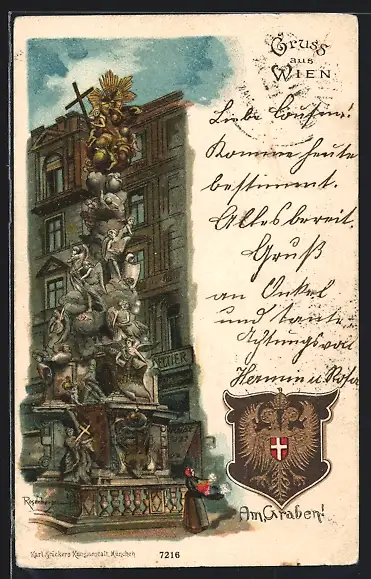 Gruss
aus
WIEN
Liebe Cousine!
Komme heute
bestimmt.
Alles bereit.
Gruß
an Onkel
und Tante
Achtungsvoll
Hermine u Rosa
Am Graben!
Karl Krückers Kunstanstalt, München
7216